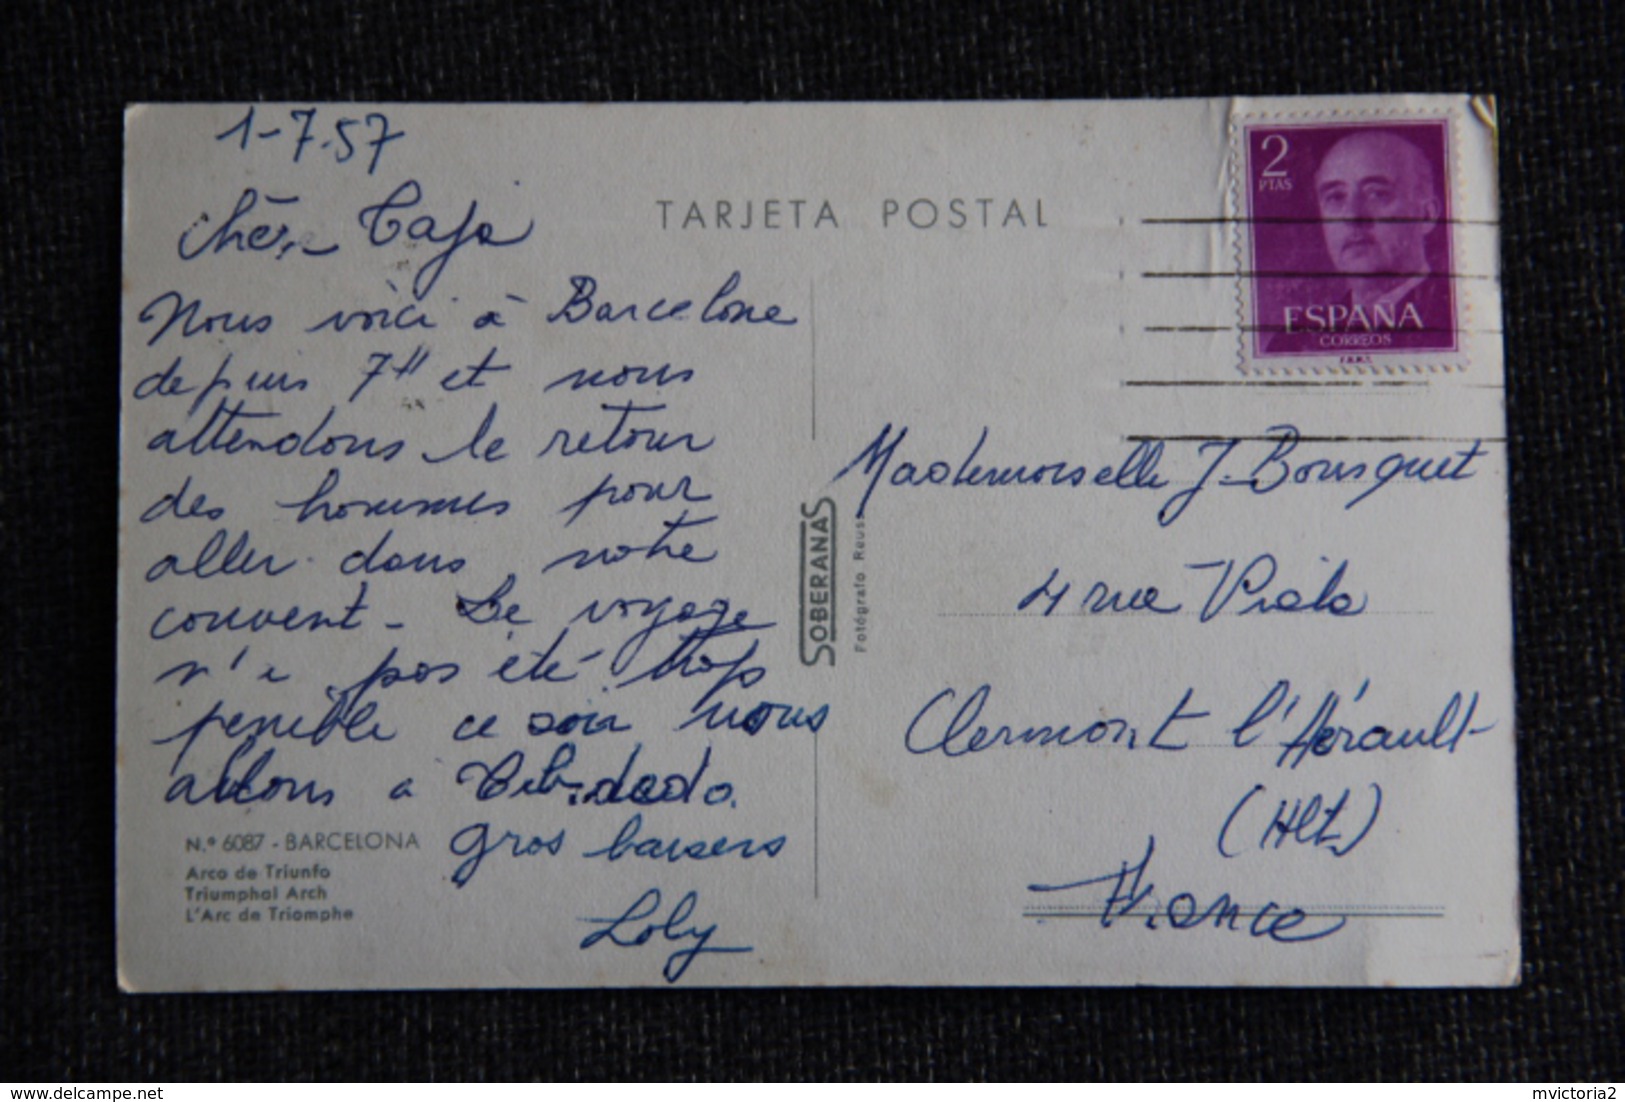 1-7-57
TARJETA POSTAL
2
PTAS
ESPAÑA
CORREOS
F.N.M.T.
Nous voici à Barcelone
depuis 7H et nous
attendons le retour
des hommes pour
aller dans notre
couvent - Le voyage
n'a pas été trop
penible ce soir nous
allons a Tibidado.
Gros baisers
Loly
Nº 6087 - BARCELONA
Arco de Triunfo
Triumphal Arch
L'Arc de Triomphe
SOBERANAS
Fotógrafo Reus
Mademoiselle J. Bousquet
4 rue Viala
Clermont l'Hérault
(Hlt)
France
www.delcampe.net
mvictoria2